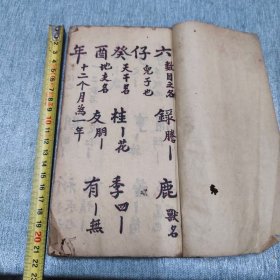 六 數目之名 錄 謄丨 鹿 獸名
仔 兒子也
癸 天干名 桂 丨花 季 四丨
酉 地支名 友 丨朋 有 丨無
年 十二个月為一年